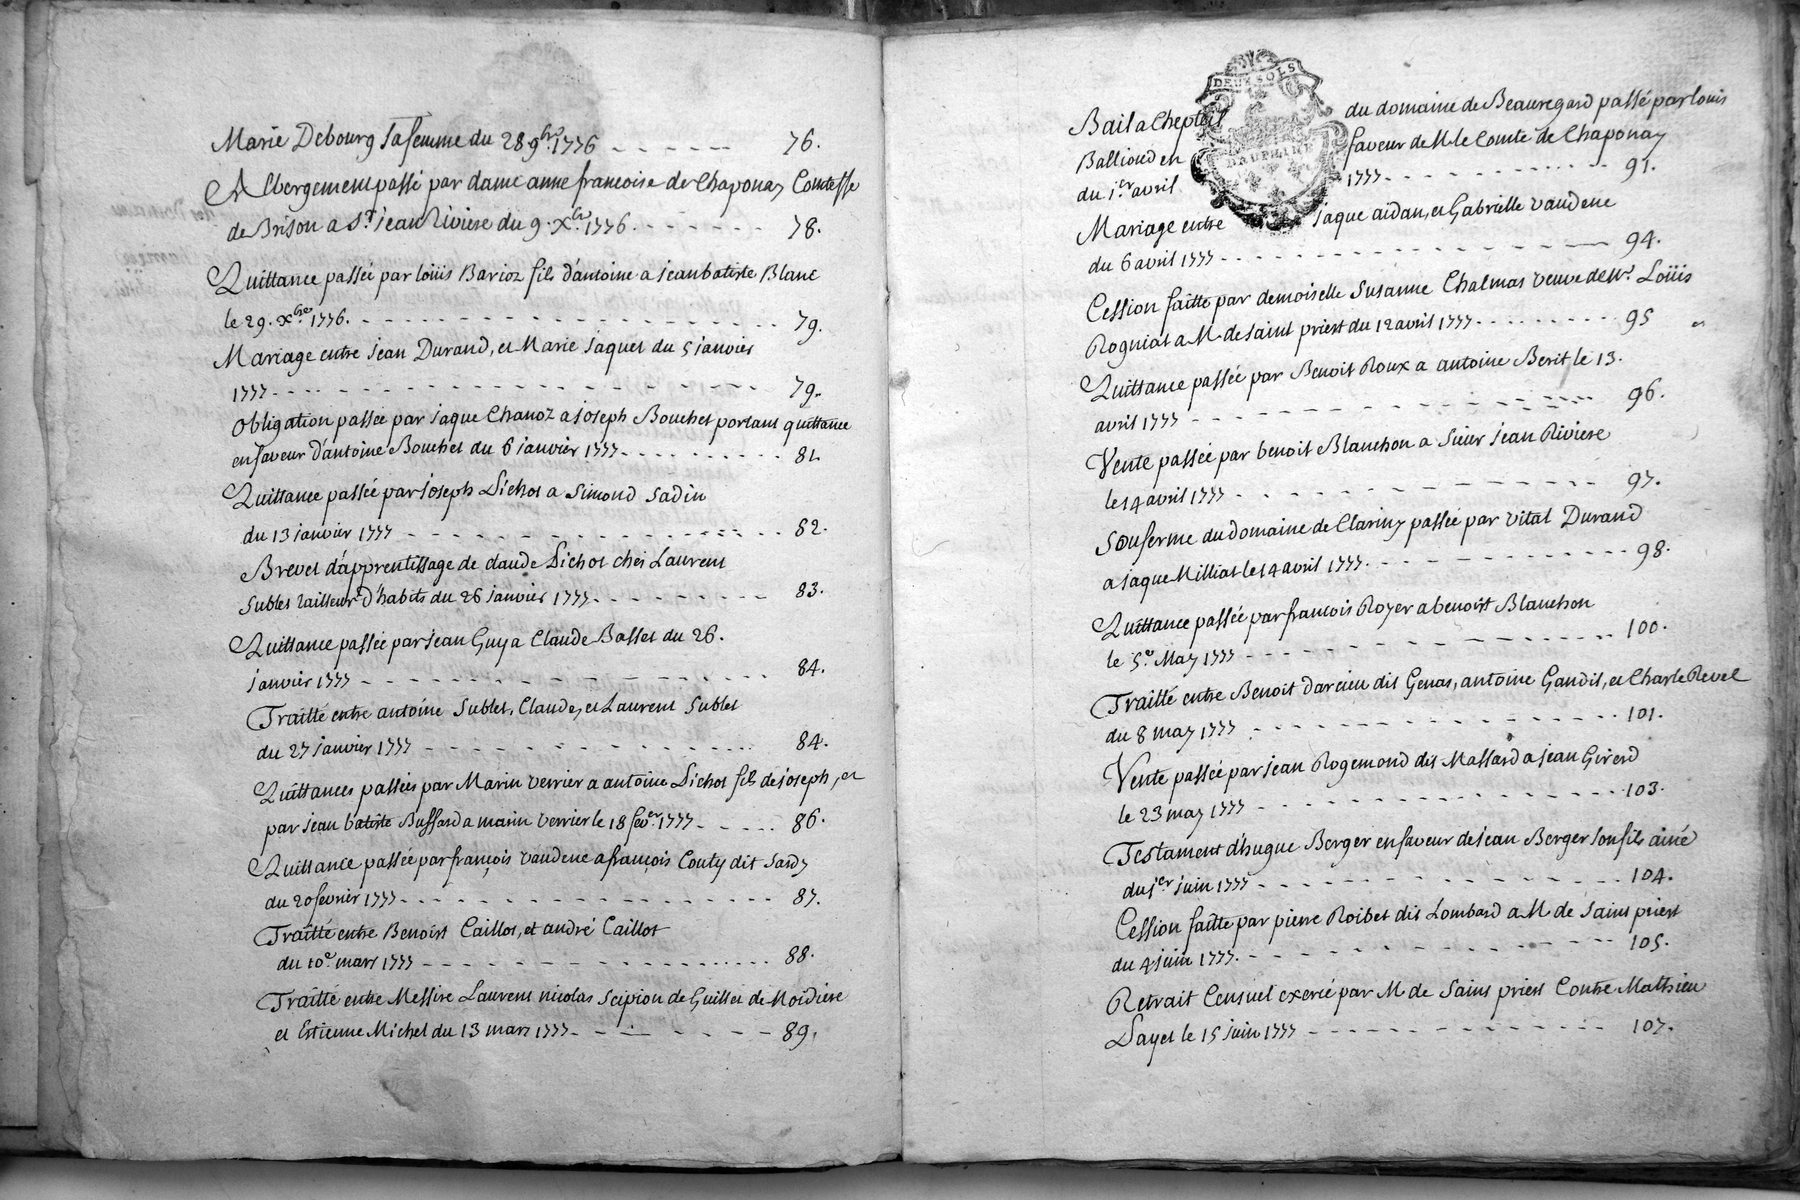 Marie Debourg sa femme du 28 9bre 1776 - - - - - - 76.
Albergement passé par dame anne francoise de Chaponay Comtesse
de Brison a Sr. jean Riviere du 9. Xbre 1776. - - - - - - 78.
Quittance passée par loüis Barioz fils d'antoine a jean batiste Blanc
le 29. Xbre 1776. - - - - - - - - - - 79.
Mariage entre jean Durand, et Marie jaquet du 5 janvier
1777 - - - - - - - - - - 79.
Obligation passée par jaque Chanoz a joseph Bouchet portant quittance
en faveur d'antoine Bouchet du 6 janvier 1777 - - - - - - 81.
Quittance passée par joseph Pichot a Simond Sadin
du 13 janvier 1777 - - - - - - - - - - 82.
Brevet d'apprentissage de claude Pichot chés Laurent
Sublet tailleur d'habits du 26 janvier 1777 - - - - - - 83.
Quittance passée par jean Guy a Claude Basset du 26.
janvier 1777 - - - - - - - - - - 84.
Traitté entre antoine Sublet, Claude, et Laurent Sublet
du 27 janvier 1777 - - - - - - - - - - 84.
Quittances passées par Marin verrier a antoine Pichot fils de joseph, et
par jean batiste Buffard a marin verrier le 18 fevrer. 1777 - - - - - 86.
Quittance passée par françois vaudene a françois Couty dit Sardy
du 20 fevrier 1777 - - - - - - - - - - 87.
Traitté entre Benoist Caillot, et andré Caillot
du 10e mars 1777 - - - - - - - - - - 88.
Traitté entre Messire Laurent nicolas Scipion de Guillet de Moidiere
et Estienne Michel du 13 mars 1777 - - - - - - 89.
DEUX SOLS
DAUPHINE
Bail a Chepteil du domaine de Beauregard passé par louis
Balliond en faveur de M. le Comte de Chaponay
du 1er avril 1777 - - - - - - - - 91.
Mariage entre jaque aidan, et Gabrielle vaudene
du 6 avril 1777 - - - - - - - - - - 94.
Cession faitte par demoiselle Susanne Chalmas veuve de Mr. Loüis
Rogniat a M. de Saint priest du 12 avril 1777 - - - - - - 95
Quittance passée par Benoit Roux a antoine Berit le 13.
avril 1777 - - - - - - - - - - 96.
Vente passée par benoit Blanchon a Sieur jean Riviere
le 14 avril 1777 - - - - - - - - - - 97.
Souferme du domaine de Clariny passée par vital Durand
a jaque Milliat le 14 avril 1777 - - - - - - - - 98.
Quittance passée par francois Royer a benoist Blanchon
le 5e. May 1777 - - - - - - - - - - 100.
Traitté entre Benoit Darcieu dit Genas, antoine Gandit, et Charle Revel
du 8 may 1777 - - - - - - - - - - 101.
Vente passée par jean Rogemond dit Massard a jean Girerd
le 23 may 1777 - - - - - - - - - - 103.
Testament d'hugue Berger en faveur de jean Berger son fils ainé
du 1er juin 1777 - - - - - - - - - - 104.
Cession faitte par pierre Roibet dit Lombard a M. de Saint priest
du 4 juin 1777. - - - - - - - - - - 105.
Retrait Censuel exercé par M. de Saint priest Contre Mathieu
Payet le 15 juin 1777 - - - - - - - - - - 107.